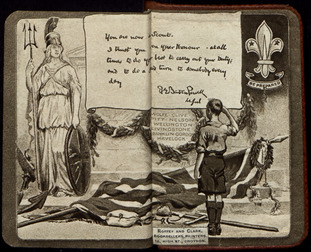 You are now a Scout.
I trust you on your Honour - at all
times to do your best to carry out your Duty,
and to do a Good turn to somebody every
day
BE PREPARED
WOLFE CLIVE
PITT NELSON
WELLINGTON
LIVINGSTONE
FRANKLIN GORDON
HAVELOCK
ROFFEY AND CLARK,
BOOKSELLERS, PRINTERS
12, HIGH ST., CROYDON.